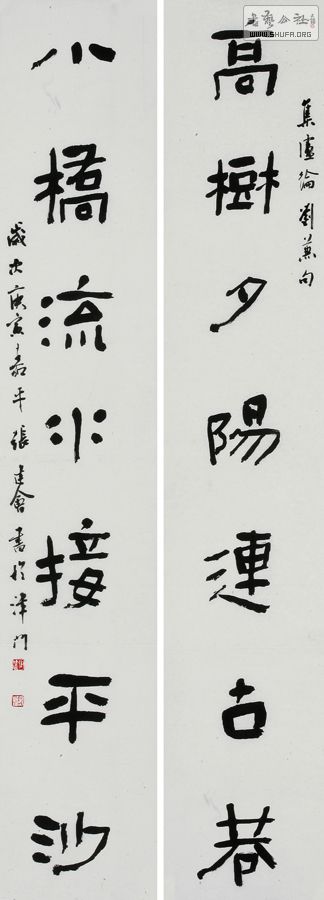 书艺公社
WWW.SHUFA.ORG
集卢纶刘兼句
高樹夕陽連古巷
小橋流水接平沙
歲次庚寅
張建會書於津門